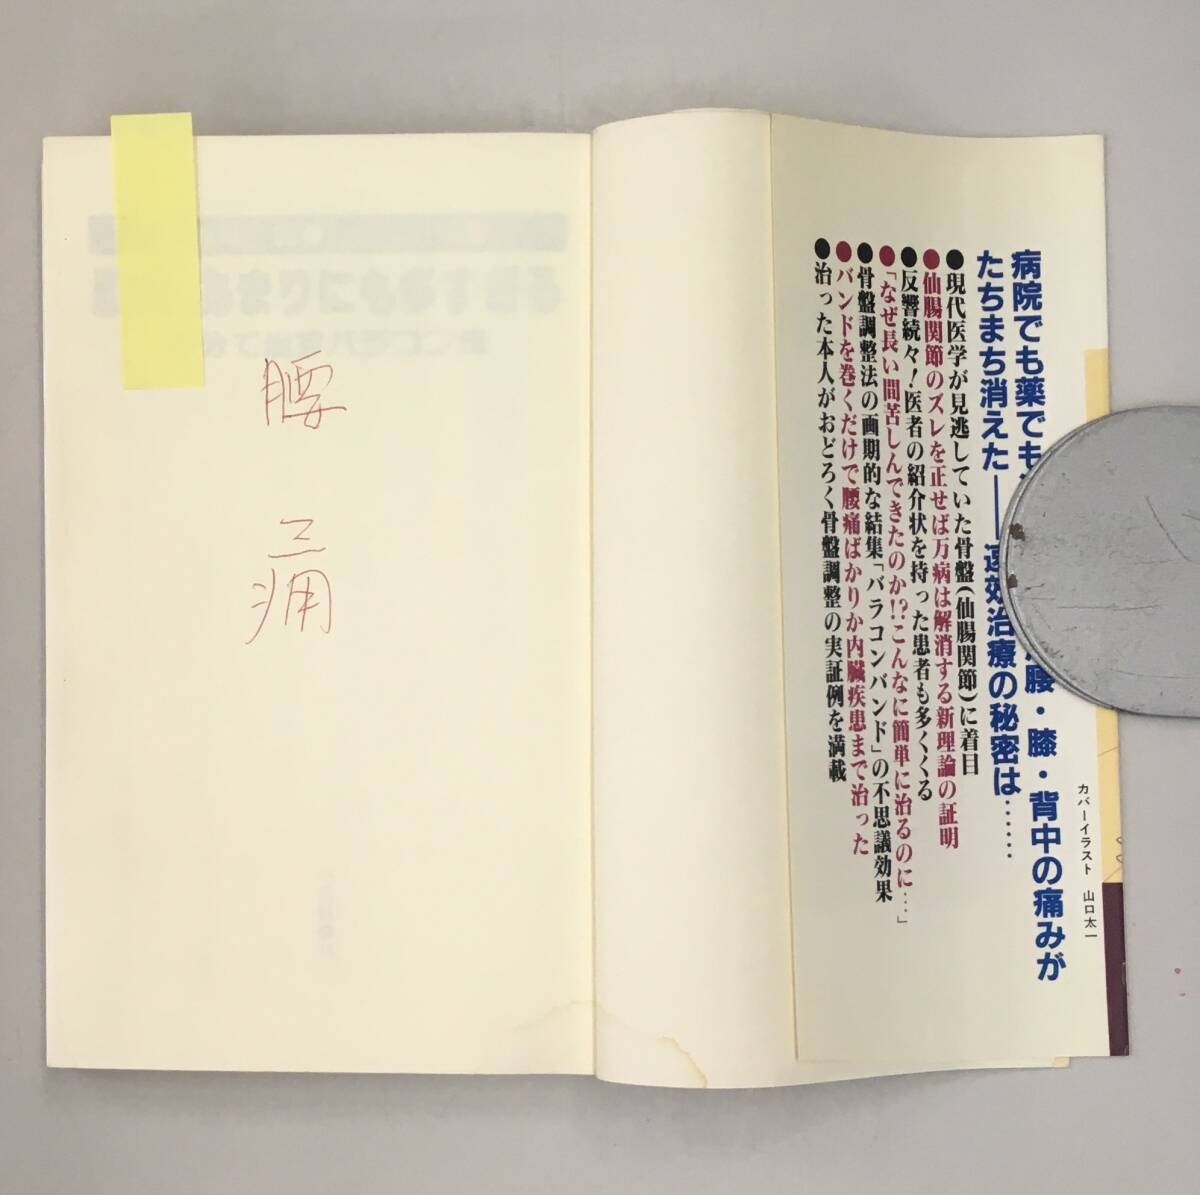 病院でも薬でも
腰・膝・背中の痛みが
たちまち消えた——速効治療の秘密は……
●現代医学が見逃していた骨盤(仙腸関節)に着目
●仙腸関節のズレを正せば万病は解消する新理論の証明
●反響続々!医者の紹介状を持った患者も多くくる
●「なぜ長い間苦しんできたのか!?こんなに簡単に治るのに…」
●骨盤調整法の画期的な結集「バラコンバンド」の不思議効果
●バンドを巻くだけで腰痛ばかりか内臓疾患まで治った
●治った本人がおどろく骨盤調整の実証例を満載
カバーイラスト 山口太一
腰
痛